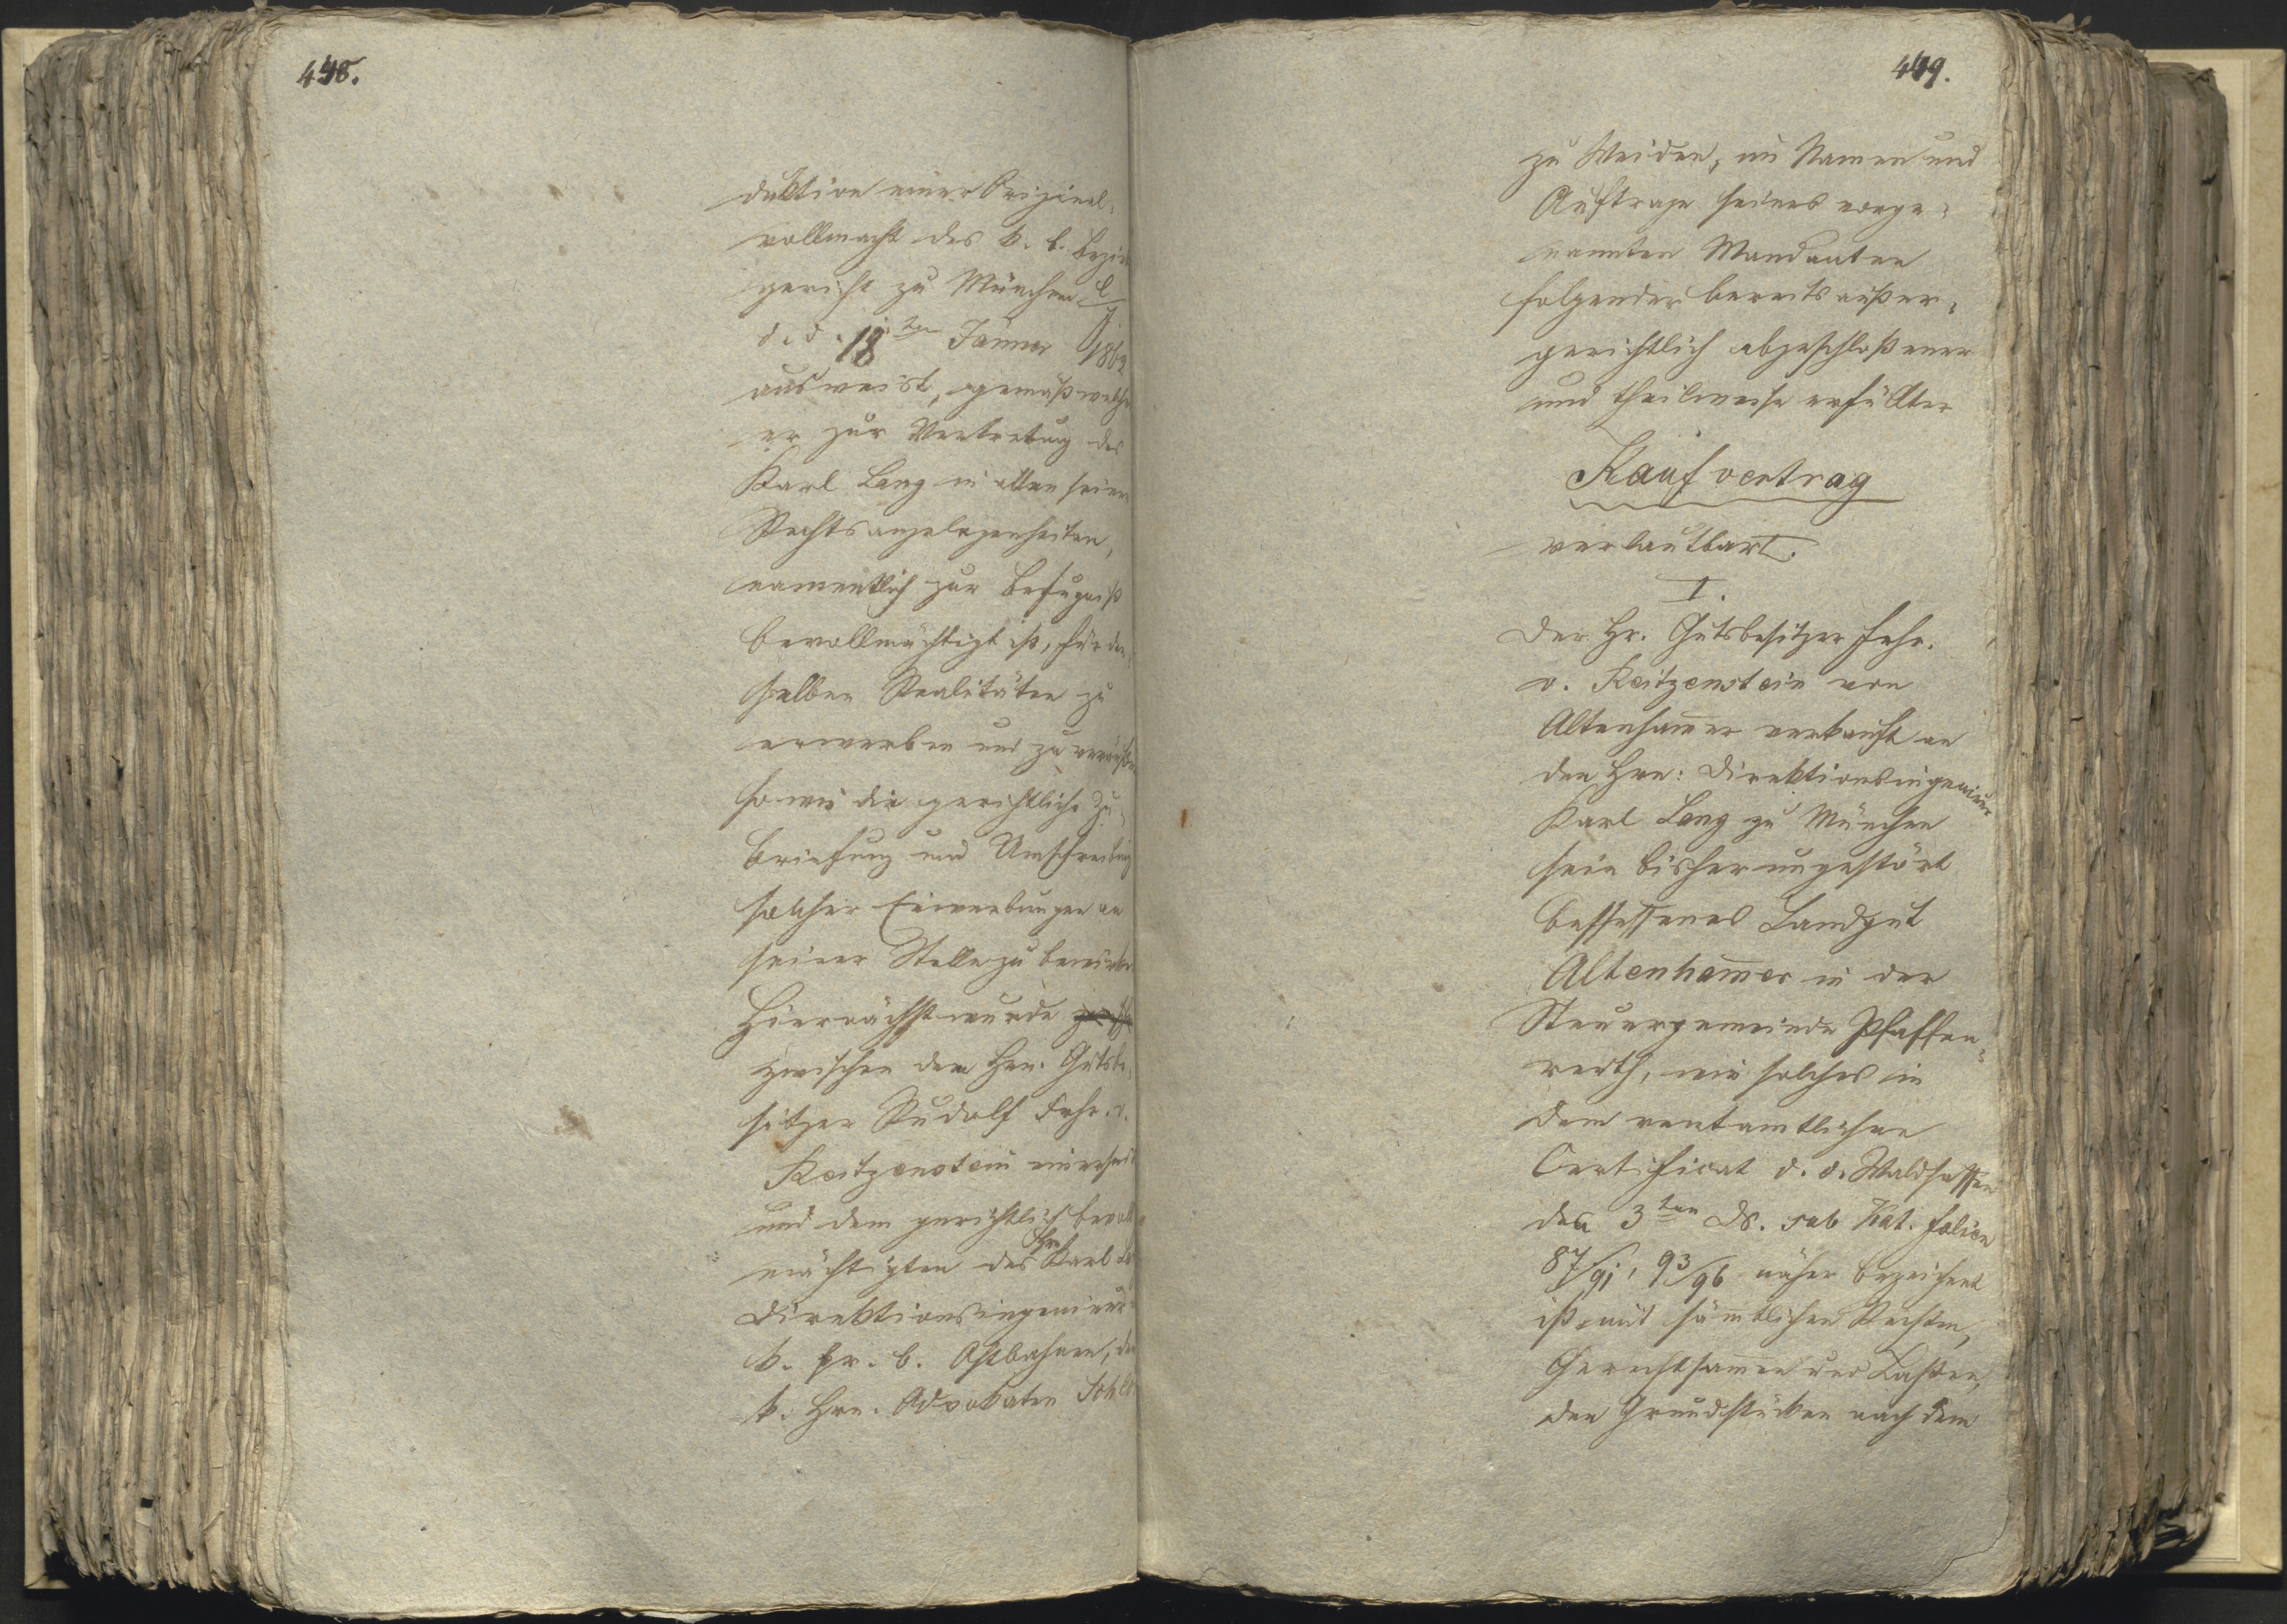 448.
duktion einer Original¬
vollmacht des k. b. Bezirks
gericht zu München l/J
d. d. 18ten Jänner 1862
ausweist, gemäß welcher
er zur Vertretung des
Karl Lang in allen seinen
Rechtsangelegenheiten,
namentlich zur Befugniß
bevollmächtigt ist, für den¬
selben Realitäten zu
erwerben und zu veräußern
so wie die gerichtliche Zu¬
briefung und Umschreibung
solcher Erwerbungen an
seiner Stelle zu bewirken
Hiernächst wurde
zwischen dem Hrn. Gutsbe¬
sitzer Rudolf Frhr. v.
Reitzenstein einerseits
und dem gerichtlich bevoll
mächtigten des Hrn Karl
Direktionsingenieur
k. pr. b. Ostbahnen, den
k. Hrn. Advokaten
449.
zu Weiden, im Namen und
Auftrage seines vorge¬
nannten Mandanten
folgender bereits außer¬
gerichtlich abgeschloßener
und theilweise erfüllter
Kaufvertrag
verlautbart.
I.
Der Hr. Gutsbesitzer Frhr.
v. Reitzenstein von
Altenham̅er verkauft an
den Hrn: Direktionsingenieur
Karl Lang zu München
sein bisher ungestört
besessenes Landgut
Altenham̅er in der
Steuergemeinde Pfaffen¬
reuth, wie solches in
dem rentamtlichen
Certificat d. d. Waldsassen
den 3ten Ds. sub Kat. folien
87/91, 93/96 näher bezeichnet
ist, mit säm̅tlichen Rechten,
Gerechtsamen und Lasten,
den Grundstücken nach dem